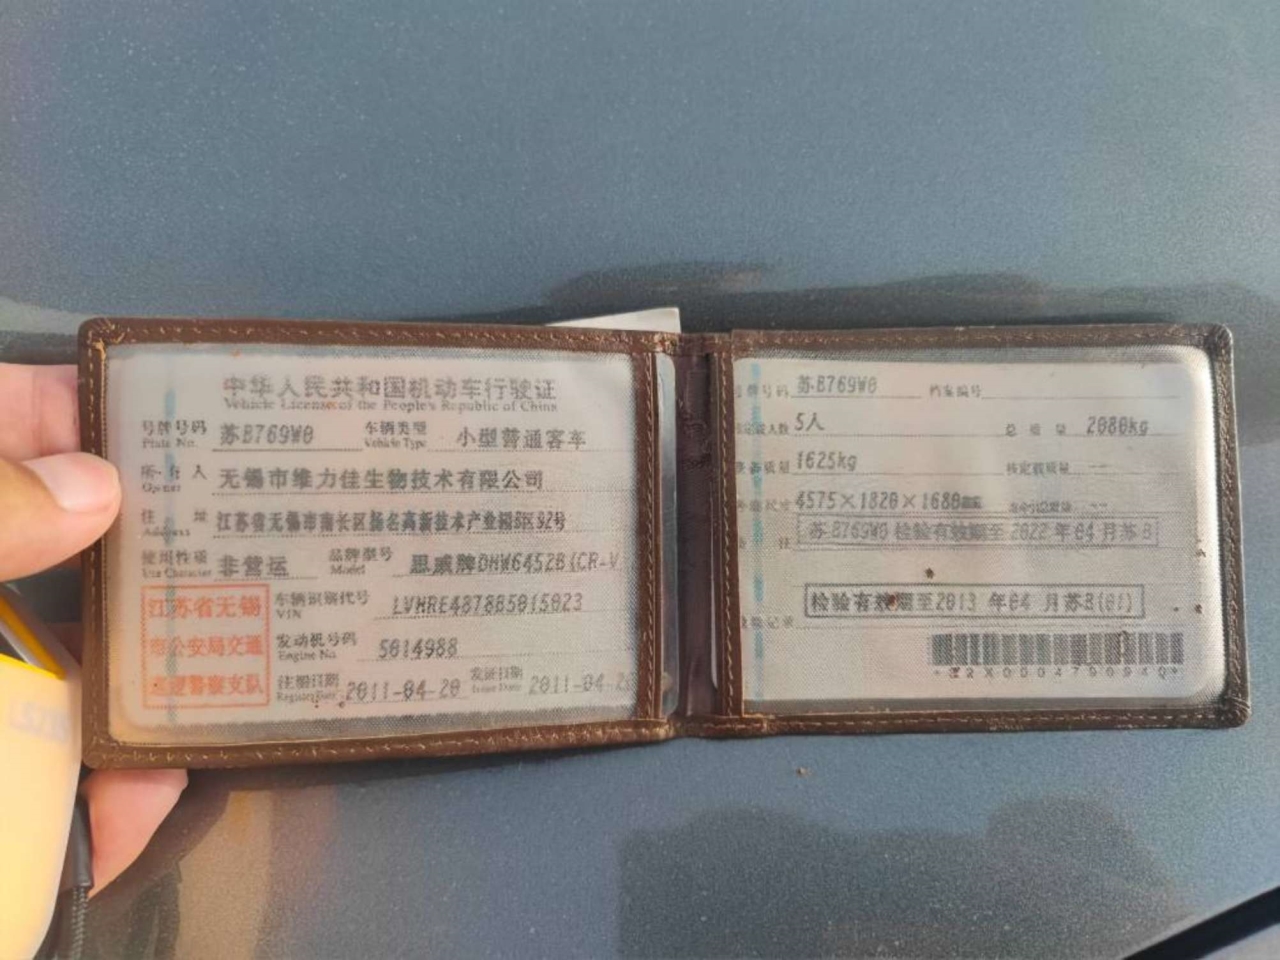 中华人民共和国机动车行驶证
Vehicle License of the People's Republic of China
号牌号码 苏B769W0 车辆类型 小型普通客车
Plate No. Vehicle Type
所有人 无锡市维力佳生物技术有限公司
Owner
住址 江苏省无锡市南长区扬名高新技术产业园B区92号
Address
使用性质 非营运 品牌型号 思威牌DHW6452B(CR-V
Use Character Model
江苏省无锡
市公安局交通
巡逻警察支队
车辆识别代号 LVHRE4878B5015023
VIN
发动机号码 5014988
Engine No.
注册日期 2011-04-20 发证日期 2011-04-2
Register Date Issue Date
号牌号码 苏B769W0 档案编号
核定载人数 5人 总质量 2080kg
整备质量 1625kg 核定载质量 --
外廓尺寸 4575×1820×1680mm --
苏B769W0 检验有效期至 2022 年 04 月苏 B
检验有效期至2013 年04 月苏B(01)
检验记录
*32X0004790940*